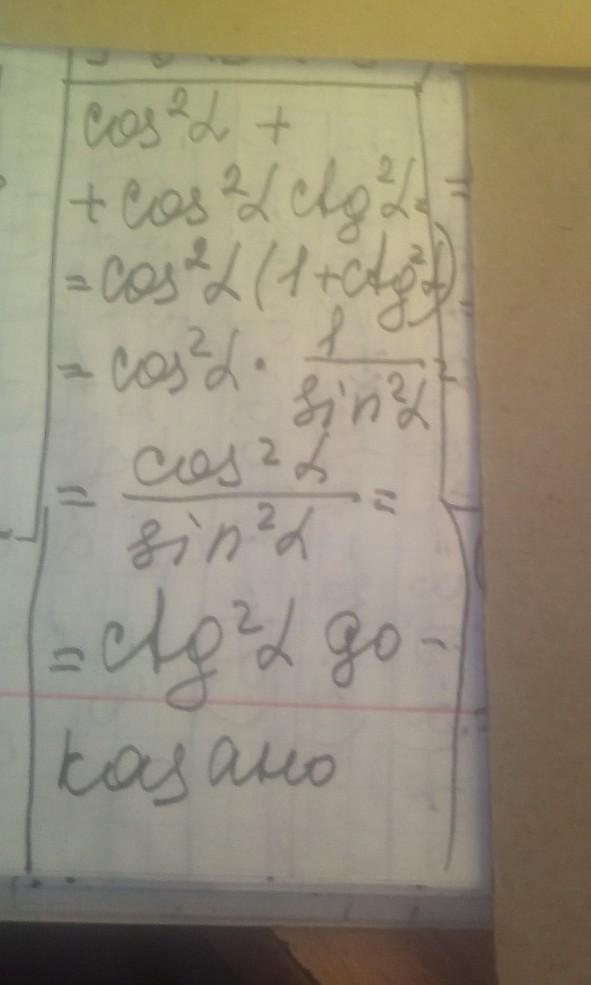 cos²α +
+ cos²α ctg²α =
= cos²α (1 + ctg²α) =
= cos²α · 1/sin²α =
= cos²α/sin²α =
= ctg²α до-
казано